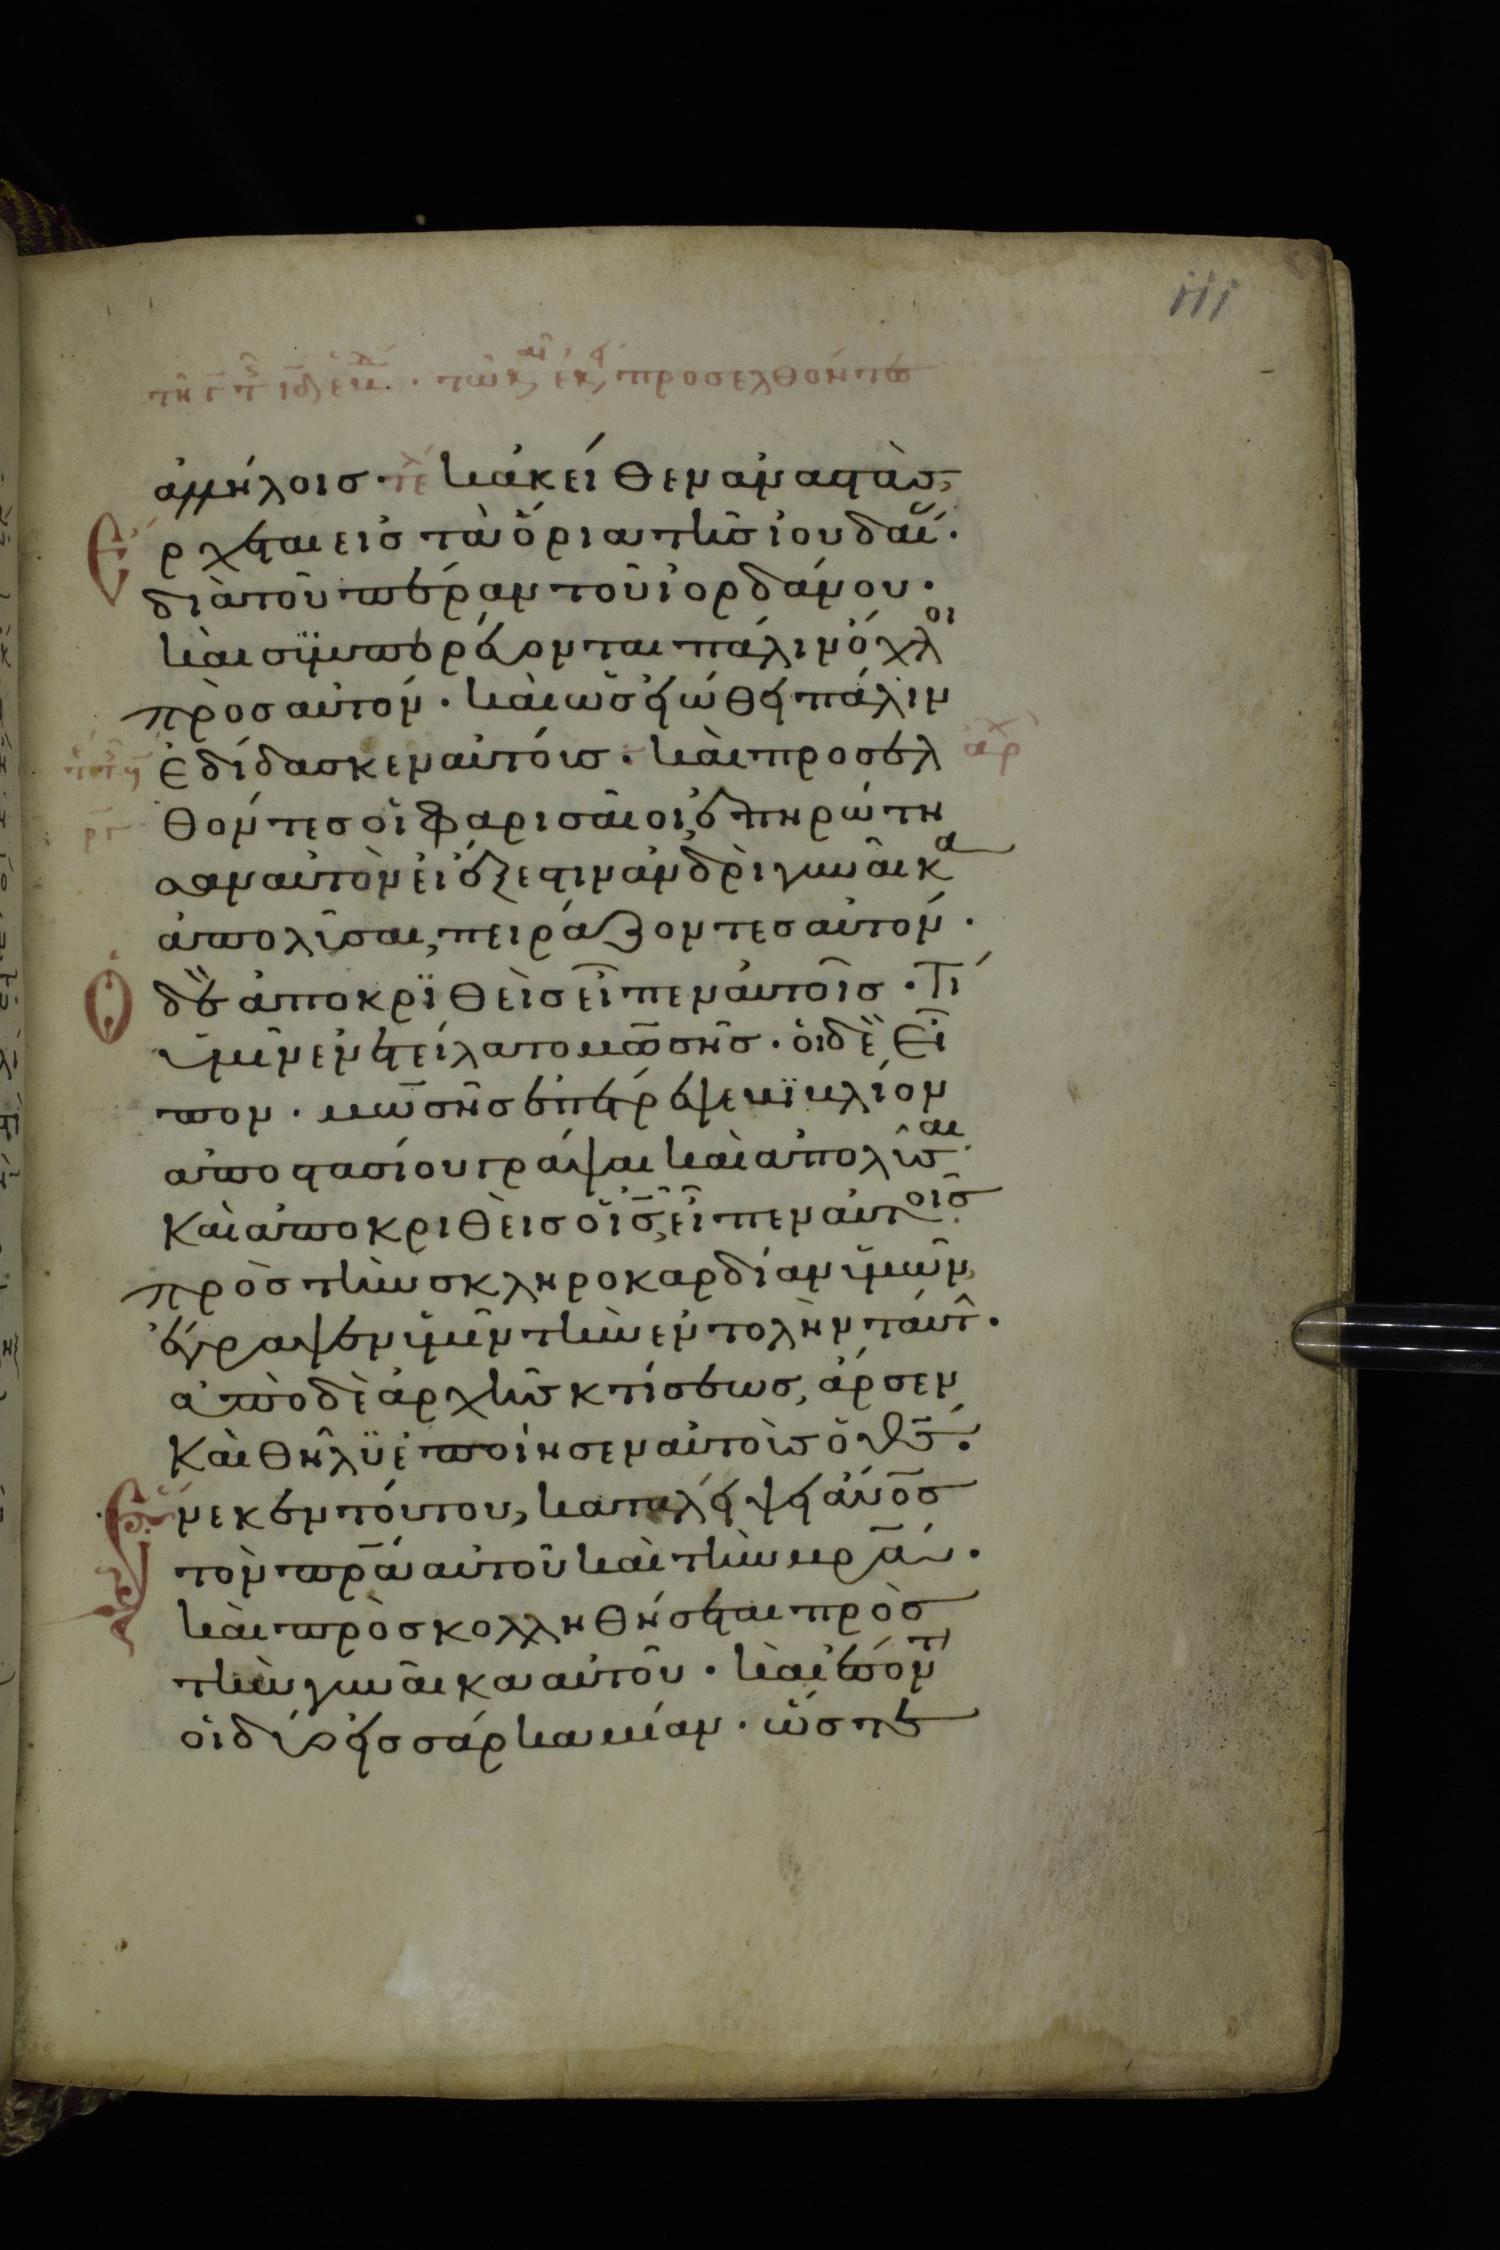 iii
προσελθόντω
ἀλλήλοισ· τέλ κἀκεῖθεν ἀναστὰσ,
Ἔρχεται εἰσ τὰ ὅρια τῆσ ἰουδαί·
διὰ τοῦ πέραν τοῦ ἰορδάνου·
καὶ συμπορεύονται πάλιν ὄχλοι
πρὸσ αὐτόν· καὶ ὡσ εἰώθει πάλιν
ἐδίδασκεν αὐτούσ· καὶ προσελ ἀρχ
θόντεσ οἱ φαρισαῖοι, ἐπηρώτη
σαν αὐτὸν εἰ ἔξεστιν ἀνδρὶ γυναῖκα
ἀπολῦσαι, πειράζοντεσ αὐτόν·
Ὁ δὲ ἀποκριθεὶσ εἶπεν αὐτοῖσ· Τί
ὑμῖν ἐνετείλατο μωσῆσ· οἱ δὲ εἶ
πον· μωσῆσ ἐπέτρεψε βιβλίον
ἀποστασίου γράψαι καὶ ἀπολῦσαι·
Καὶ ἀποκριθεὶσ ὁ ἰσ, εἶπεν αὐτοῖσ·
πρὸσ τὴν σκληροκαρδίαν ὑμῶν,
ἔγραψεν ὑμῖν τὴν ἐντολὴν ταύτ·
ἀπὸ δὲ ἀρχῆσ κτίσεωσ, ἄρσεν
καὶ θῆλυ ἐποίησεν αὐτοὺσ ὁ θσ·
Ἕνεκεν τούτου, καταλείψει ἄνοσ
τὸν πρα αὐτοῦ καὶ τὴν μρα·
καὶ προσκολληθήσεται πρὸσ
τὴν γυναῖκα αὐτοῦ· καὶ ἔσοντ
οἱ δύο εἰσ σάρκα μίαν· ὥστε